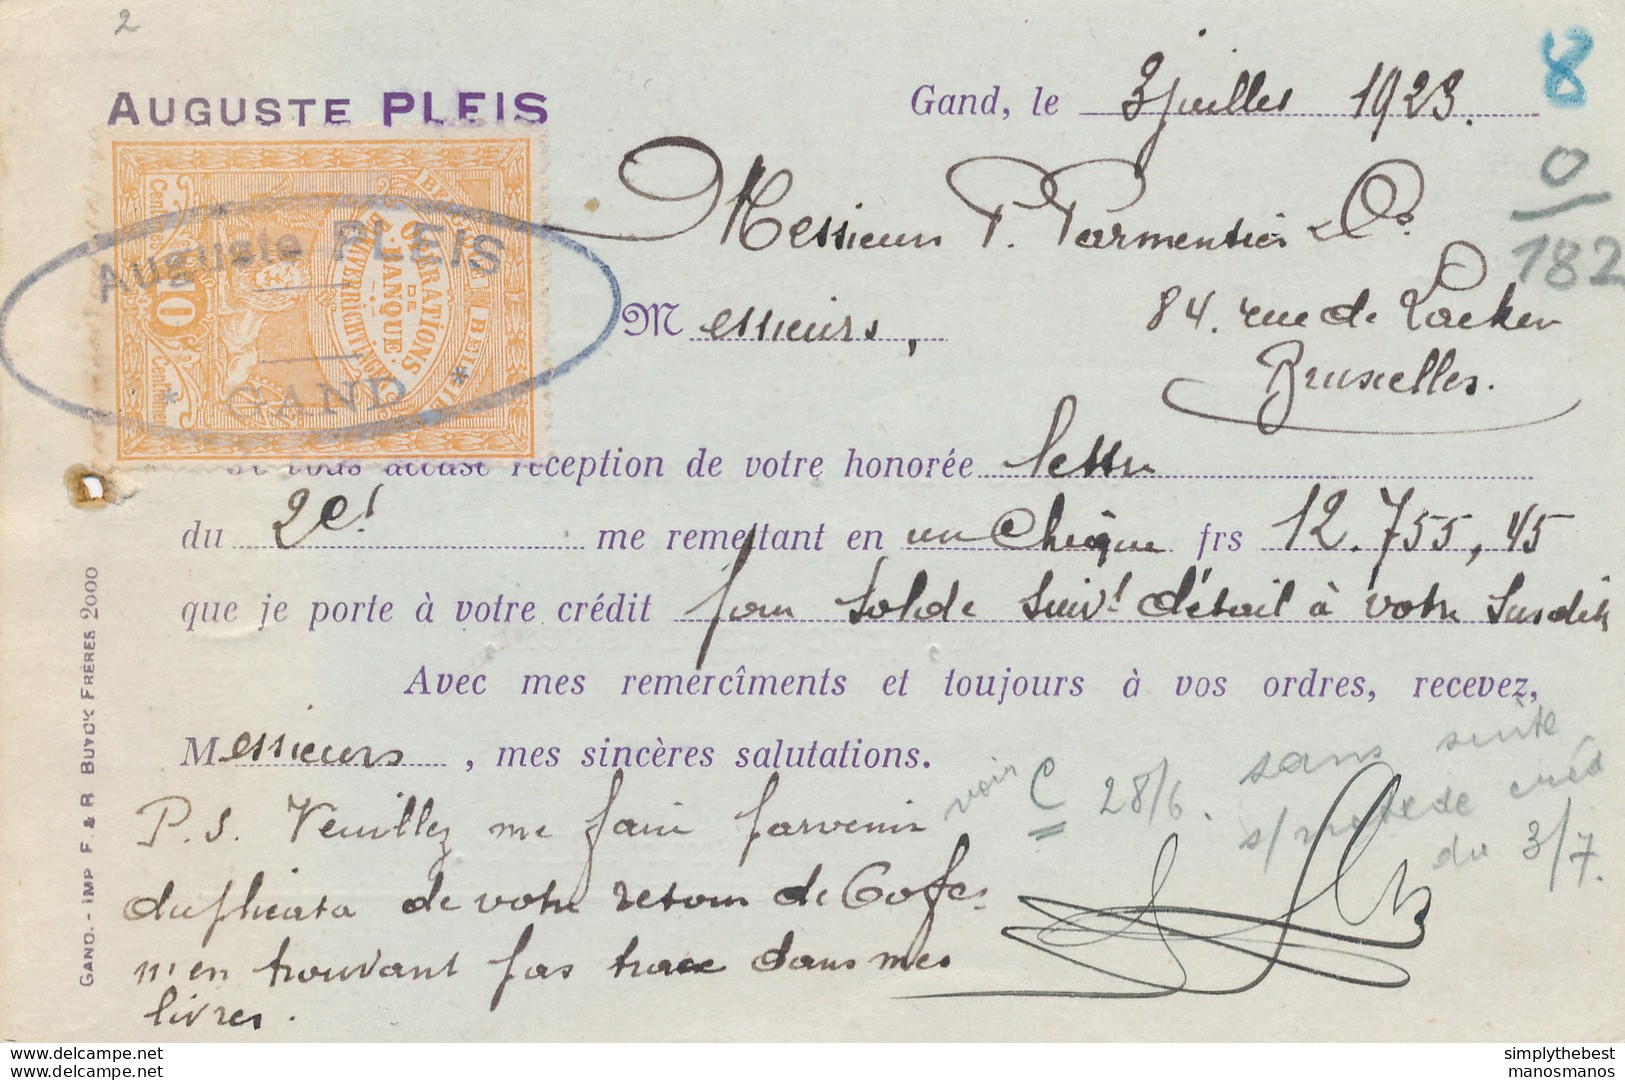 2
8
AUGUSTE PLEIS
Gand, le 3 juillet 1923.
0
182
Messieurs P. Parmentier & Co.
84. rue de Laeken
Bruxelles.
Centimes 10 Centiemen
BELGIQUE BELGIË
OPÉRATIONS DE BANQUE
BANKVERRICHTINGEN
Auguste PLEIS
* GAND *
Messieurs,
Je vous accuse réception de votre honorée lettre
du 2ct me remettant en un chèque frs 12.755,45
que je porte à votre crédit pour solde suivt détail à votre susdite
Avec mes remercîments et toujours à vos ordres, recevez,
Messieurs, mes sincères salutations.
voir C 28/6. sans suite
s/ note de créd
du 3/7.
P.S. Veuillez me faire parvenir
duplicata de votre retour de
m'en trouvant pas trace dans mes
livres.
GAND. - IMP F. & R BUYCK FRÈRES 2000
delcampe.net
delcampe.net
simplythebest
manosmanos